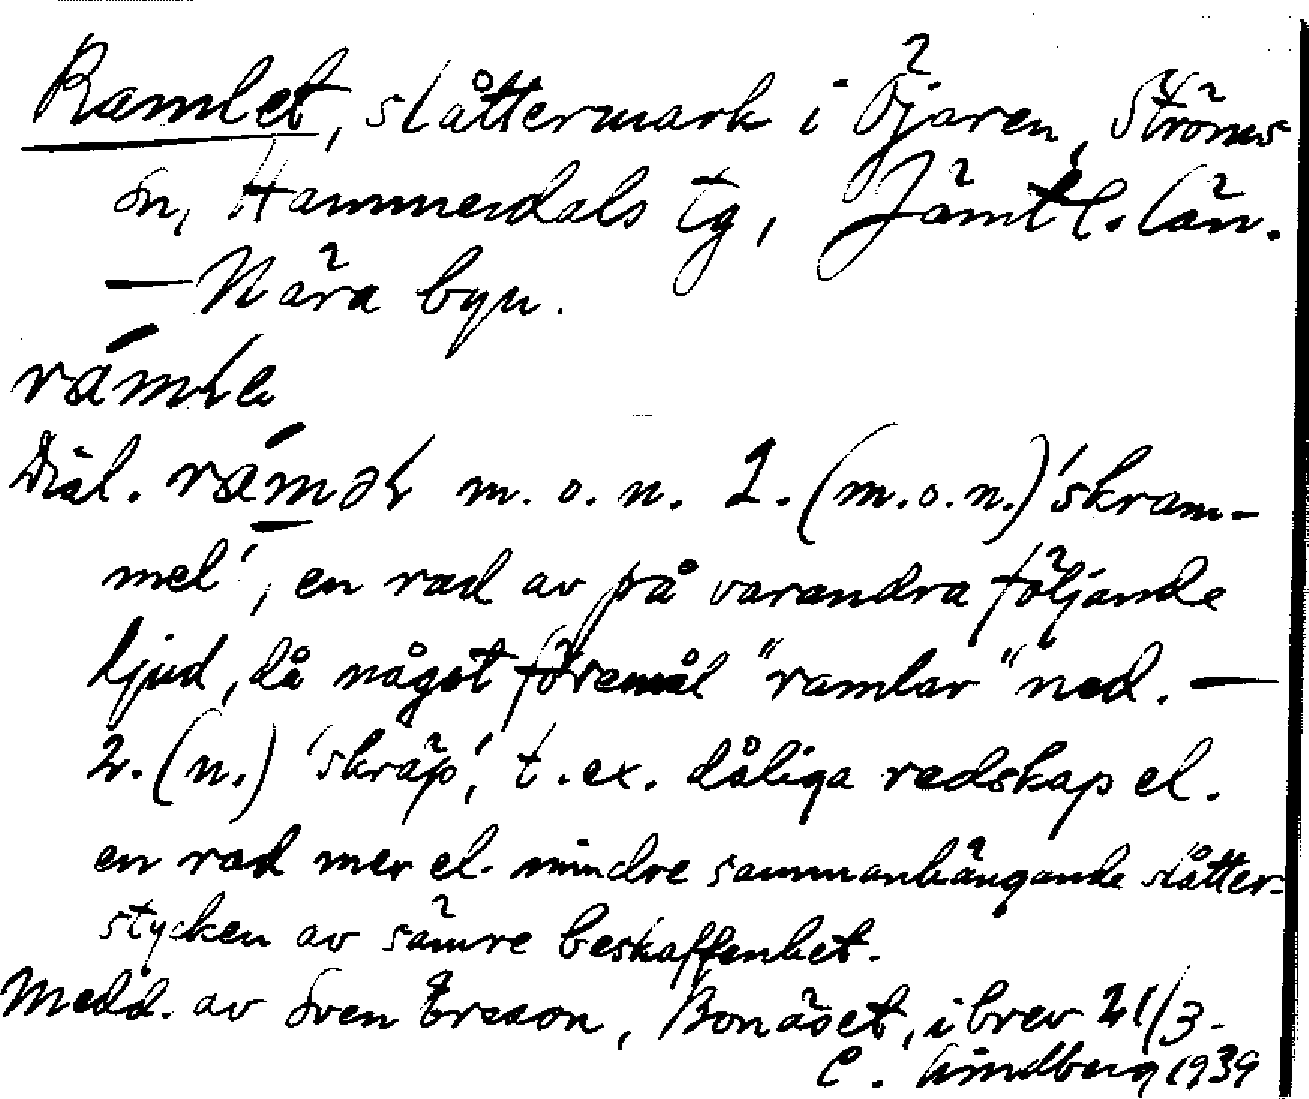 Ramlet, slåttermark i Öjaren, Ströms
sn, Hammerdals tg, Jämtl. län.
— Nära byn.
rámle
Dial. ráməl m. o. n. 1. (m. o. n.) 'skram-
mel', en rad av på varandra följande
ljud, då något föremål "ramlar" ned. —
2. (n.) 'skräp', t. ex. dåliga redskap el.
en rad mer el. mindre sammanhängande slåtter-
stycken av sämre beskaffenhet.
Medd. av Sven Ersson, Bonäset, i brev 21/3-
C. Lindberg 1939